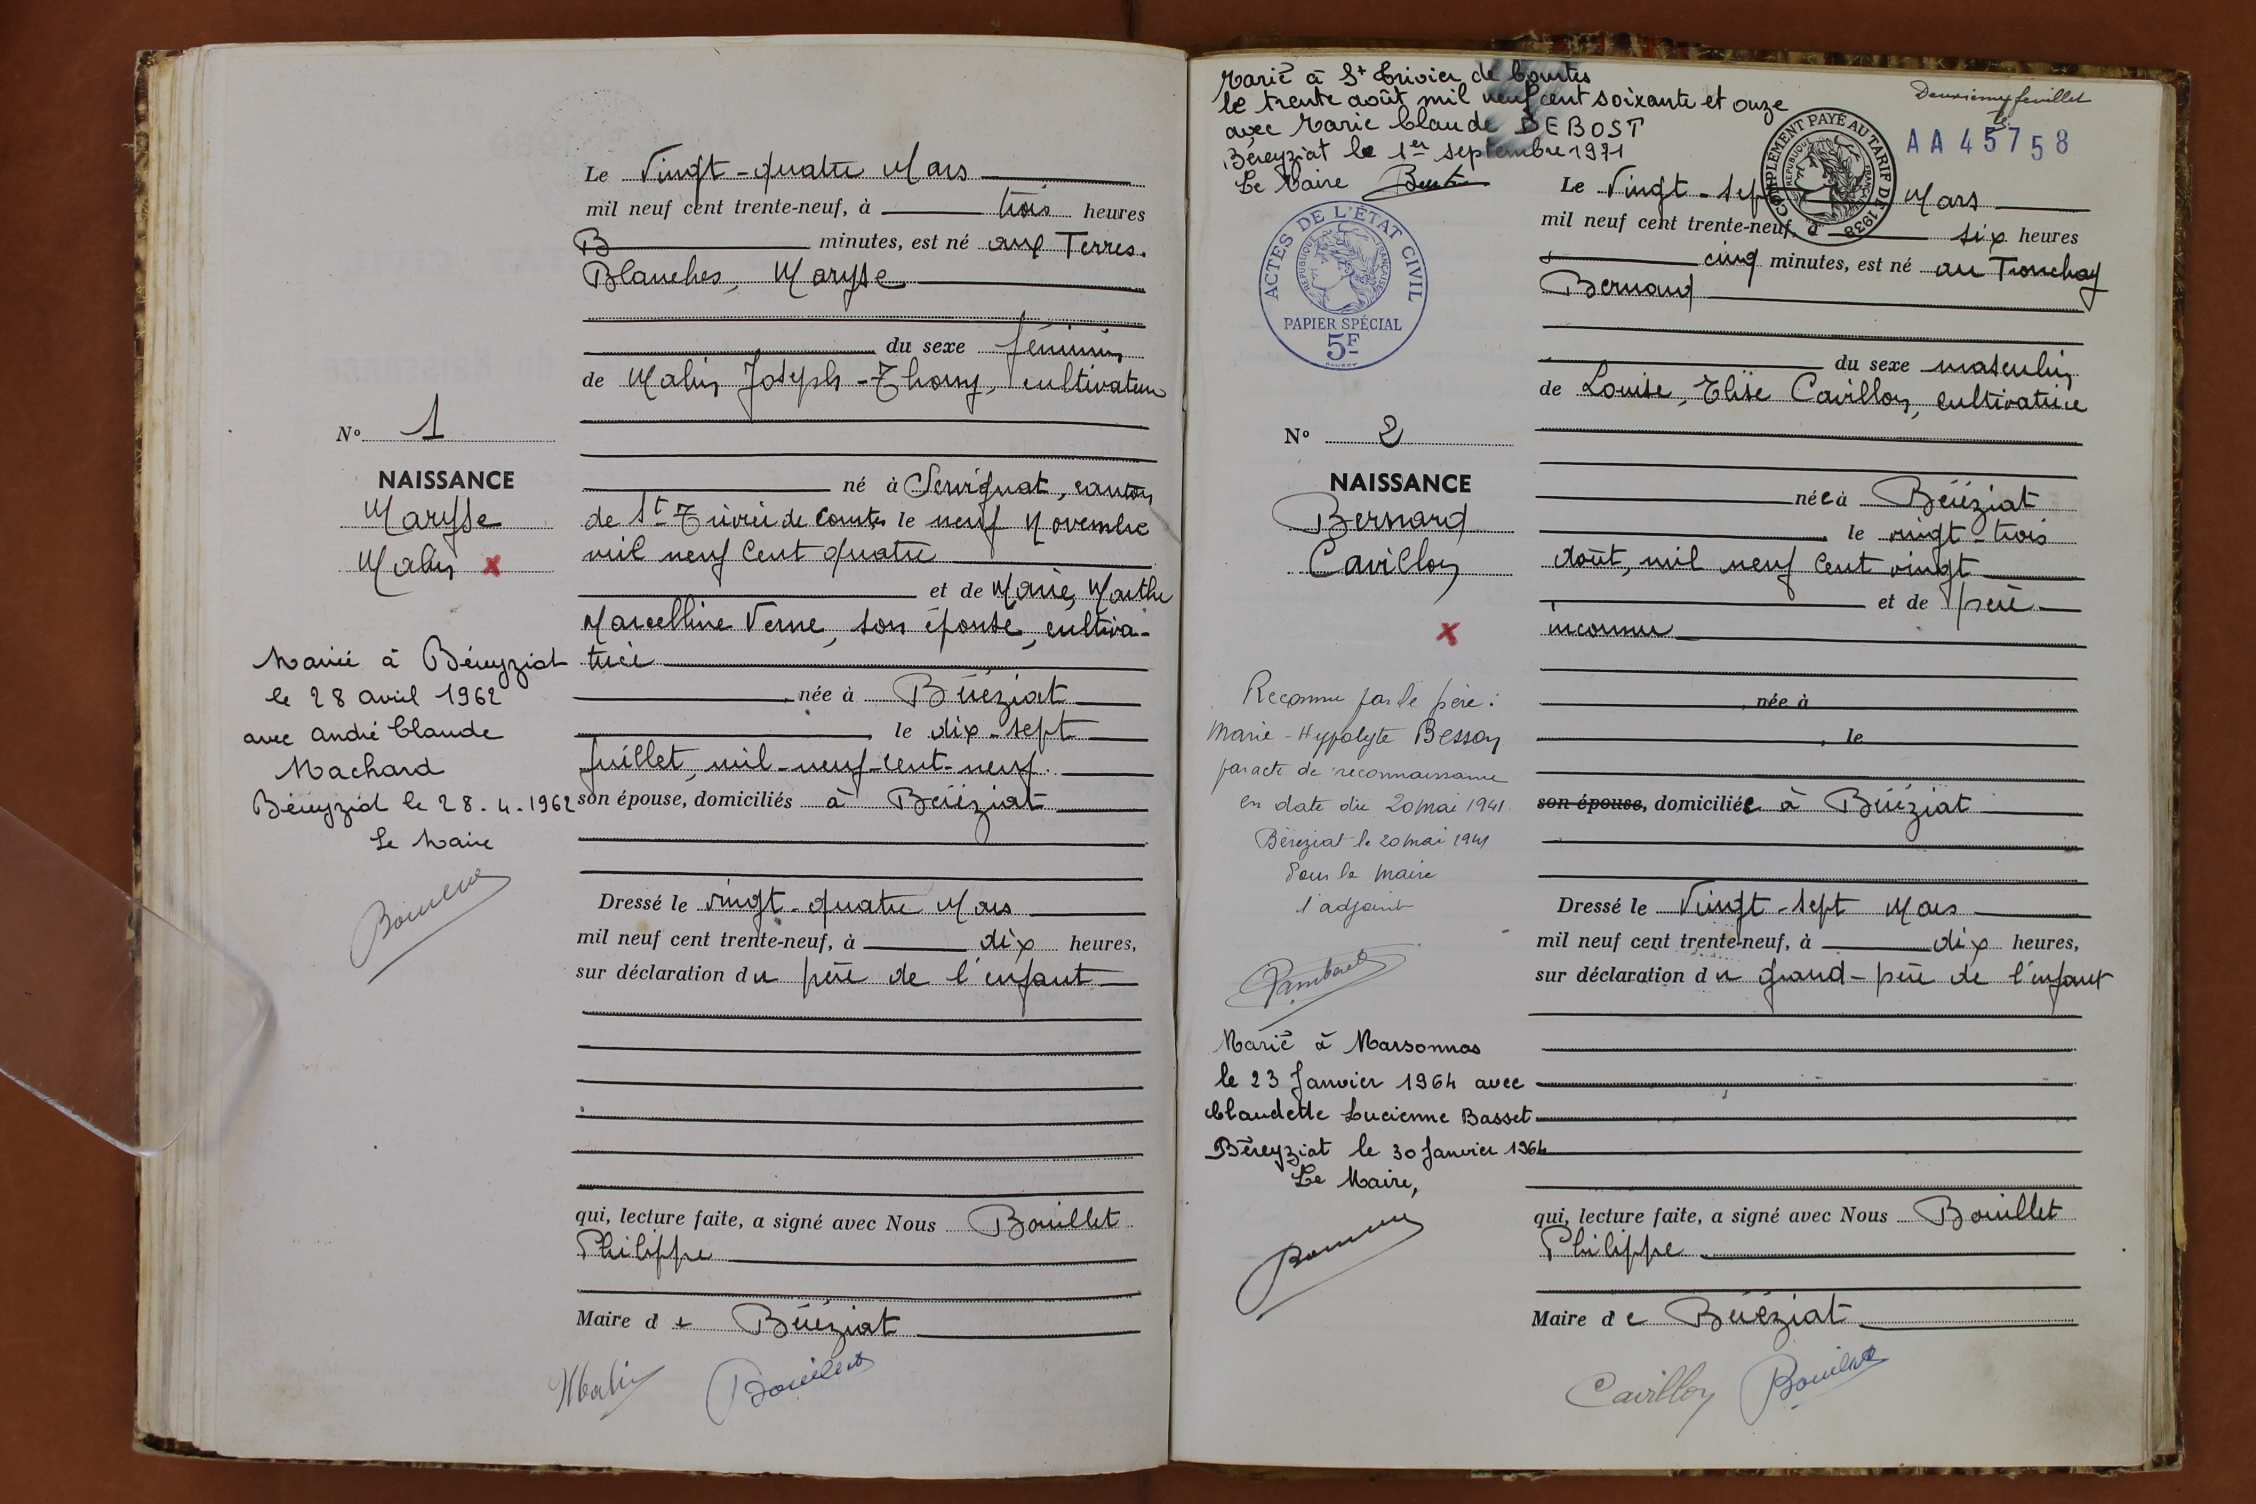 Le Vingt-quatre Mars
mil neuf cent trente-neuf, à trois heures
minutes, est né aux Terres.
Blanches, Maryse
du sexe féminin
de Malin Joseph-Thony, cultivateur
N° 1
NAISSANCE
Maryse
Malin
né à Servignat, canton
de St Trivier de Courtes le neuf Novembre
mil neuf cent quatre
et de Marie, Marthe
Marcelline Verne, son épouse, cultiva-
trice
née à Béréziat
le dix-sept
Juillet, mil-neuf-cent-neuf
son épouse, domiciliés à Béréziat
Mariée à Béreyziat
le 28 avril 1962
avec André Claude
Machard
Béreyziat le 28.4.1962
Le Maire
Dressé le vingt-quatre Mars
mil neuf cent trente-neuf, à dix heures,
sur déclaration du père de l'enfant
qui, lecture faite, a signé avec Nous Bouillet
Philippe
Maire de Béréziat
Malin Bouillet
Marié à St Trivier de Courtes
le trente août mil neuf cent soixante et onze
avec Marie Claude DEBOST
Béreyziat le 1er septembre 1971
Le Maire
Deuxième feuillet
AA 45758
COMPLÉMENT PAYÉ AU TARIF DE 1938
RÉPUBLIQUE FRANÇAISE
ACTES DE L'ÉTAT CIVIL
RÉPUBLIQUE FRANÇAISE
PAPIER SPÉCIAL
5F
Le Vingt-sept Mars
mil neuf cent trente-neuf, à six heures
cinq minutes, est né au Tronchay
Bernard
du sexe masculin
de Louise, Elise Cavillon, cultivatrice
N° 2
NAISSANCE
Bernard
Cavillon
née à Béréziat
le vingt-trois
Août, mil neuf cent vingt
et de père
inconnu
née à
le
son épouse, domiciliée à Béréziat
Reconnu par le père:
Marie-Hypolyte Besson
par acte de reconnaissance
en date du 20 mai 1941.
Béréziat le 20 mai 1941
Pour le Maire
l'adjoint
Marié à Marsonnas
le 23 Janvier 1964 avec
Claudette Lucienne Basset
Béreyziat le 30 Janvier 1964
Le Maire,
Dressé le Vingt-sept Mars
mil neuf cent trente-neuf, à dix heures,
sur déclaration du grand-père de l'enfant
qui, lecture faite, a signé avec Nous Bouillet
Philippe
Maire de Béréziat
Cavillon Bouillet